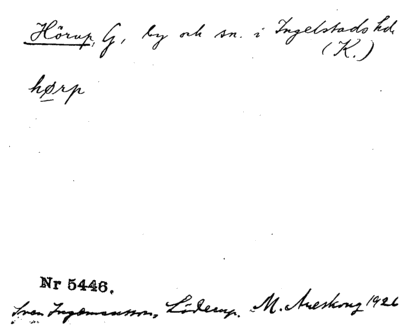 Hörup, G, by och sn. i Ingelstads hd.
(K.)
hørp
Nr 5446.
Sven Ingemansson, Löderup. M. Areskoug 1926